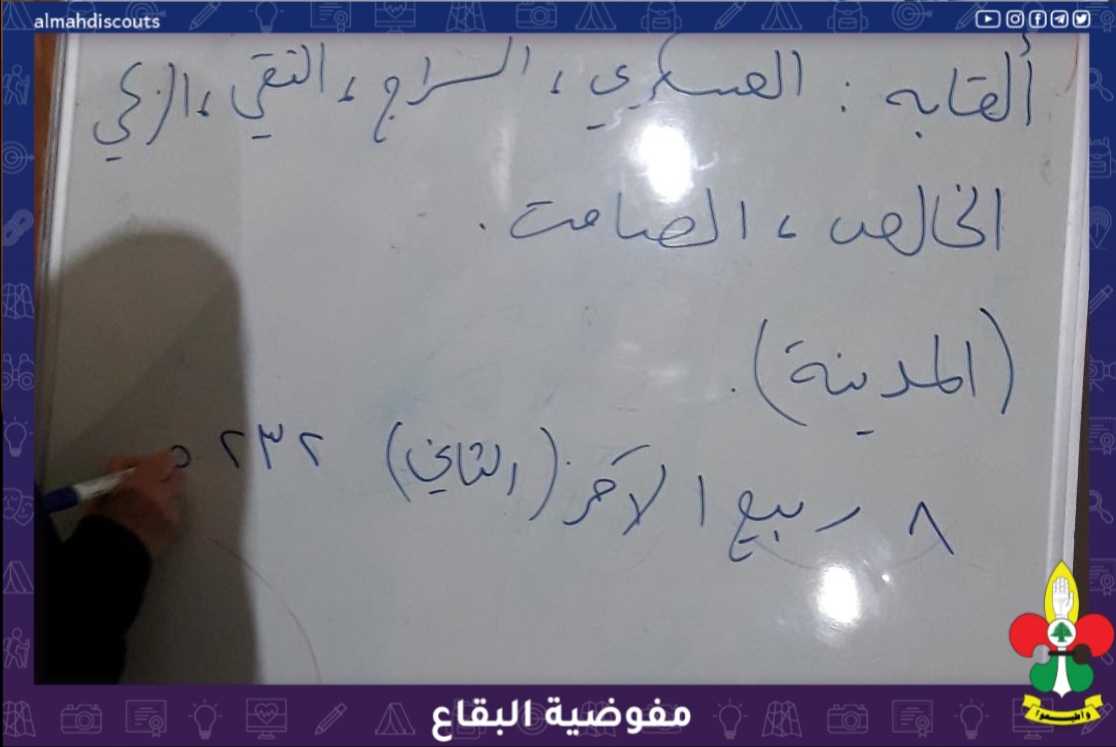 almahdiscouts
ألقابه : العسكري ، السراج ، التقي ، الزكي
الخالص ، الصامت .
(المدينة) .
٨ ربيع الآخر (الثاني) ٢٣٢ ه
مفوضية البقاع